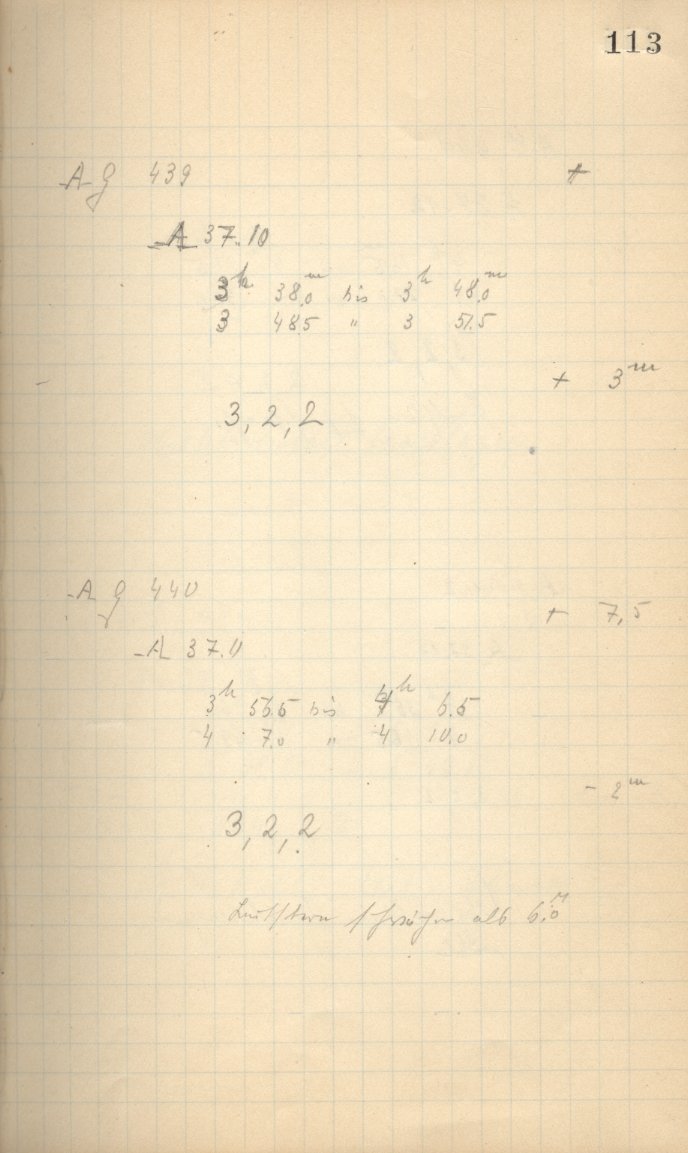 113
AG 439 +
A 37.10
3h 38.0m bis 3h 48.0m
3 48.5 " 3 51.5
+ 3m
3, 2, 2
AG 440
+ 7,5
A 37.11
3h 56.5 bis 4h 6.5
4 7.0 " 4 10.0
- 2m
3, 2, 2
Leitstern schwächer als 6.0M